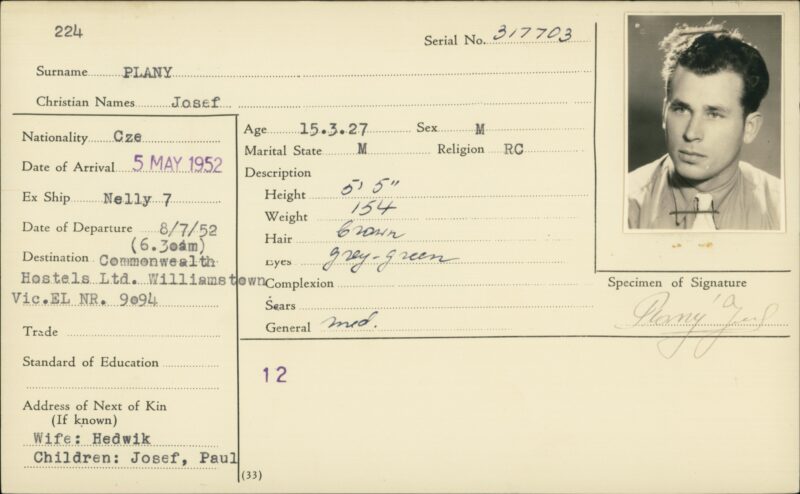 224
Serial No. 317703
Surname PLANY
Christian Names Josef
Nationality Cze
Date of Arrival 5 MAY 1952
Ex Ship Nelly 7
Date of Departure 8/7/52
(6.30am)
Destination Commonwealth
Hostels Ltd. Williamstown
Vic.EL NR. 9094
Trade
Standard of Education
Address of Next of Kin
(If known)
Wife: Hedwik
Children: Josef, Paul
Age 15.3.27 Sex M
Marital State M Religion RC
Description
Height 5' 5"
Weight 154
Hair brown
Eyes grey-green
Complexion
Scars
General med.
12
(33)
Specimen of Signature